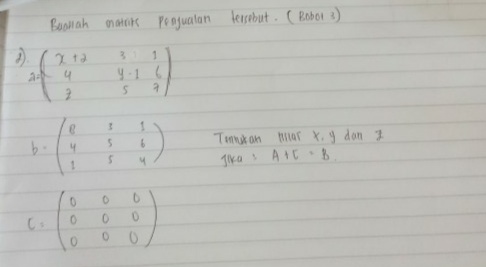 Buatlah matriks Penjualan tersebut. (Bobot 3)
2). a = ( x + 2 3 1
4 y - 1 6
z 5 7 )
b = ( 8 3 1
4 5 6
1 5 4 )
Tentukan nilai x, y dan z
Jika : A + C = B
C = ( 0 0 0
0 0 0
0 0 0 )